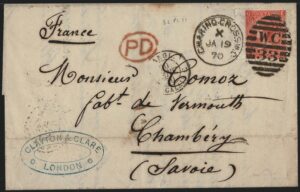 France
PD
CHARING-CROSS W.C
X
JA 19
70
WC
33
Monsieur Comoz
Fabt. de Vermouth
Chambéry
(Savoie)
CLAYTON & CLARE
LONDON